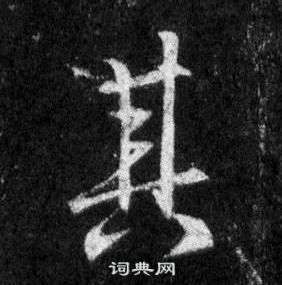 其
词典网